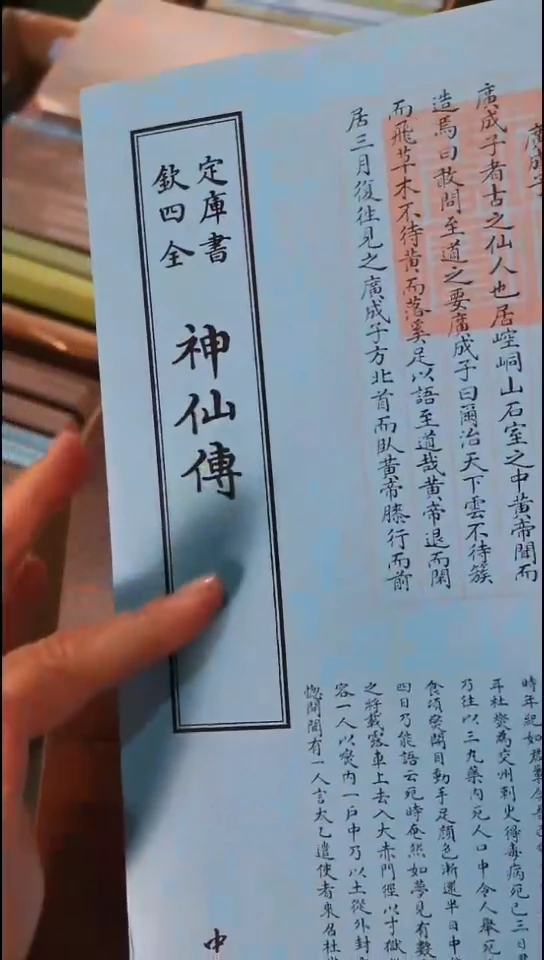 欽定四庫全書
神仙傳
廣成子
廣成子者古之仙人也居崆峒山石室之中黃帝聞而
造焉曰敢問至道之要廣成子曰爾治天下雲不待簇
而飛草木不待黃而落奚足以語至道哉黃帝退而閑
居三月復往見之廣成子方北首而臥黃帝膝行而前
時年紀如
耳杜燮為交州刺史得毒病死已三日
乃往以三丸藥內死人口中令人舉死
食頃燮開目動手足顏色漸還半日中
四日乃能語云死時奄然如夢見有數
之將載露車上去入大赤門徑以寸獄
容一人以燮內一戶中乃以土從外封
惚間聞有一人言太乙遣使者來召杜
中